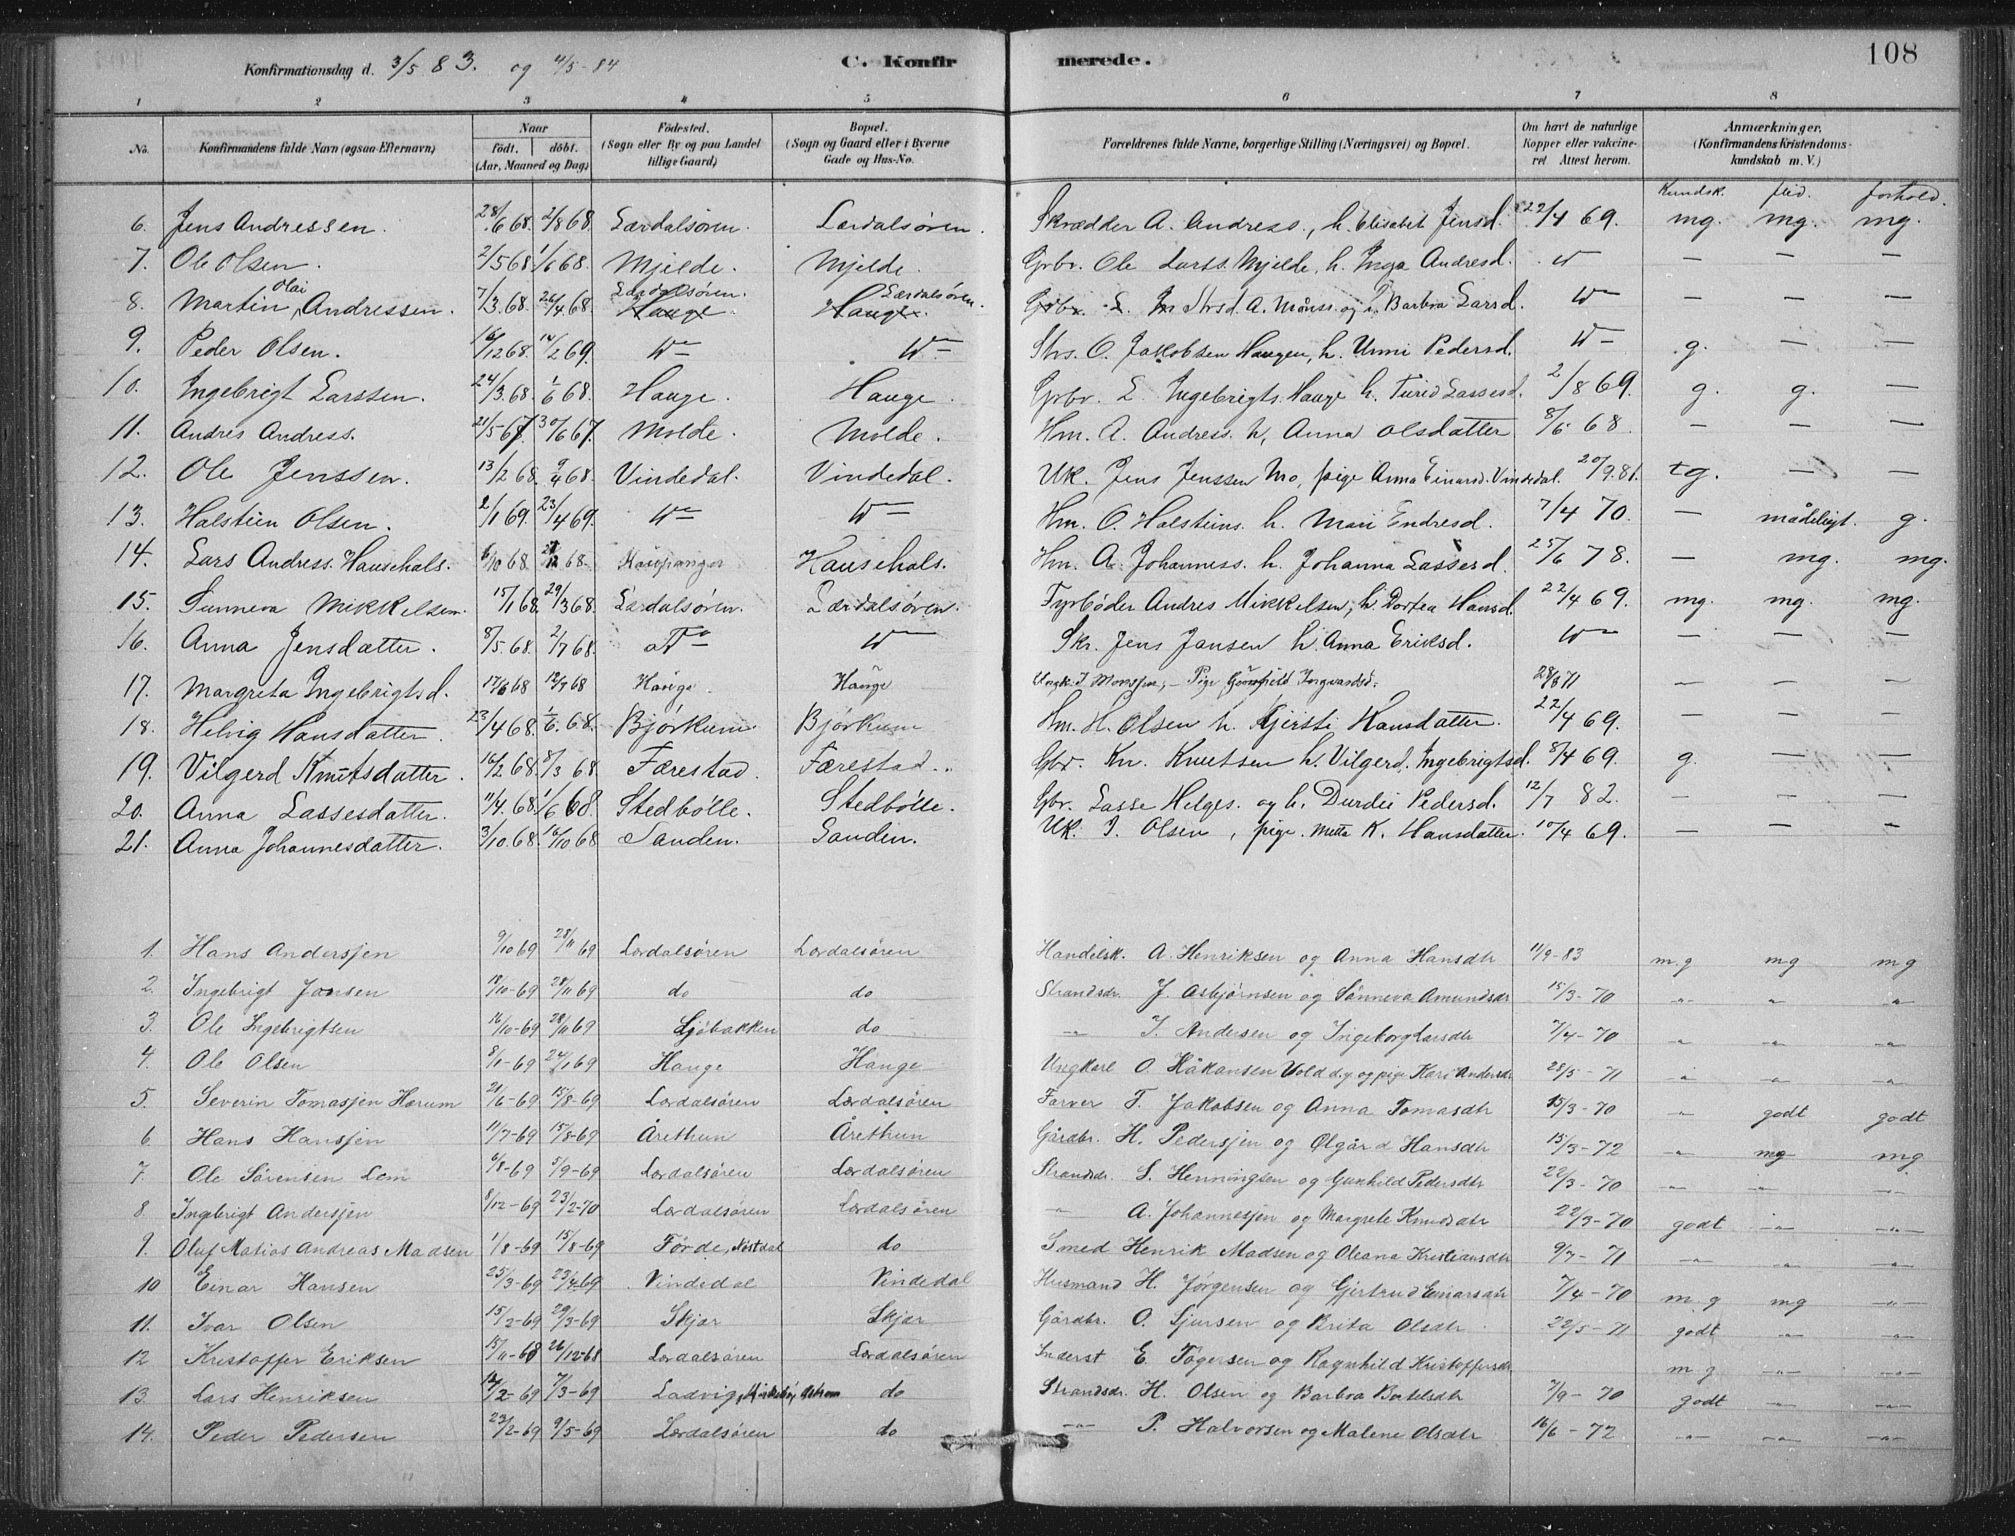 108
Konfirmationsdag d. 3/5 83. og 4/5-84 C. Konfirmerede.
1 2 3 4 5 6 7 8
No. Konfirmandens fulde Navn (ogsaa Efternavn) Naar født. døbt. (Aar, Maaned og Dag) Fødested. (Sogn eller By og paa Landet tillige Gaard) Bopæl. (Sogn og Gaard eller i Byerne Gade og Hus-No. Forældrenes fulde Navne, borgerlige Stilling (Næringsvei) og Bopæl. Om havt de naturlige Kopper eller vakcineret Attest herom. Anmærkninger. (Konfirmandens Kristendomskundskab m. V.)
Kundsk. flid. forhold.
6. Jens Andressen. 28/6 68. 2/8 68. Lærdalsøren. Lærdalsøren. Skrædder A. Andress., h. Elisabet Jensd. 22/4 69. mg. mg. mg.
7. Ole Olsen. 2/5 68. 1/6 68. Mjelde. Mjelde. Grbr. Ole Larss. Mjelde, h. Inga Andresd. " — — —
8. Martin Olai Andressen. 7/3 68. 26/4 68. Lærdalsøren. Hauge. Lærdalsøren. Hauge. Strsd. A. Månss. og h. Barbra Larsd. — — —
9. Peder Olsen. 16/12 68. 14/2 69. Strs. O. Jakobsen Haugen, h. Unni Pedersd. g. — —
10. Ingebrigt Larssen. 24/3 68. 1/6 68. Hauge. Hauge. Grbr. L. Ingebrigts. Hauge h. Turid Lassesd. 2/8 69. g. g. —
11. Andres Andress. 21/5 67. 30/6 67. Molde. Molde. Hm. A. Andress. h. Anna Olsdatter 8/6 68. — — —
12. Ole Jenssen. 13/2 68. 9/4 68. Vindedal. Vindedal. UK. Jens Jenssen Mo, pige Anna Einarsd. Vindedal. 20/9 81. tg. — —
13. Halstein Olsen. 2/1 69. 23/4 69. Hm. O. Halsteins. h. Mari Endresd. 7/4 70. — mådeligt. g.
14. Lars Andress. Hausehals. 6/10 68. 68. Kaupanger Hausehals. Hm. A. Johanness. h. Johanna Lassesd. 25/6 78. — mg. mg.
15. Sunneva Mikkelsen. 15/1 68. 29/3 68. Lærdalsøren. Lærdalsøren. Fyrbøder Andres Mikkelsen, h. Dortea Hansd. 22/4 69. mg. mg. mg.
16. Anna Jensdatter. 8/5 68. 2/7 68. Skr. Jens Jansen h. Anna Eriksd. — — —
17. Margreta Ingebrigtsd. 17/6 68 12/7 68 Hauge. Hauge 28/8 71 — — —
18. Helvig Hansdatter. 23/4 68. 1/6. 68. Bjørkum. Bjørkum Hm. H. Olsen h. Kjersti Hansdatter. 22/4 69. — — —
19. Vilgerd Knutsdatter. 16/2 68. 8/3 68. Færestad. Færestad. Gbr. Kn. Knutsen h. Vilgerd. Ingebrigtsd. 8/4 69. g. — —
20. Anna Lassesdatter. 11/4. 68. 1/6 68. Stedbølle. Stedbølle. Gbr. Lasse Helges. og h. Durdei Pedersd. 12/7 82. — — —
21. Anna Johannesdatter. 3/10. 68. 16/10 68 Sanden. Sanden. UK. J. Olsen, pige. Metta K. Hansdatter. 10/4 69. — — —
1. Hans Andersjen 9/10 69 28/11 69 Lærdalsøren Lærdalsøren Handelsk. A. Henriksen og Anna Hansdtr 11/9-83 m.g mg mg
2. Ingebrigt Jansen 18/10-69 28/11 69 do do Strandsdr. J. Asbjørnsen og Sønneva Amundsdtr 15/3-70 -"- -"- -"-
3. Ole Ingebrigtsen 16/10-69 28/11 69 Sjøbakken do -"- I. Andersen og Ingeborg Larsdtr 7/4-70 -"- -"- -"-
4. Ole Olsen 8/1-69 24/1 69 Hauge Hauge Ungkarl O. Håkansen Vold d.y og pige Kari Andersdr 28/5-71 -"- -"- -"-
5. Severin Tomasjen Hærum 21/6-69 15/8-69 Lærdalsøren Lærdalsøren Farver T. Jakobsen og Anna Tomasdtr 15/3-70 -"- godt godt
6. Hans Hansjen 11/7-69 15/8-69 Årethun Årethun Gårdbr. H. Pedersjen og Olgård Hansdtr 15/3-72 -"- mg mg
7. Ole Sørensen Lem 6/8-69 5/9-69 Lærdalsøren Lærdalsøren Strandsdr. S. Henningsen og Gunhild Pedersdtr 22/3-70 -"- -"- -"-
8. Ingebrigt Andersjen 8/12-69 23/2-70 Lærdalsøren Lærdalsøren -"- A. Johannesjen og Margrete Knudsdtr 22/3-70 godt -"- -"-
9. Oluf Matias Andreas Madsen 1/8-69 15/8-69 Førde, do Smed Henrik Madsen og Oleana Kristiansdtr 9/7-71 -"- -"- -"-
10 Einar Hansen 25/3-69 23/4-69 Vindedal Vindedal Husmand H. Jørgensen og Gjertrud Einarsdtr 7/4-70 m.g mg -"-
11. Ivar Olsen 15/2-69 29/3-69 Skjær Skjær Gårdbr. O. Sjursen og Brita Olsdtr 22/5-71 godt -"- -"-
12 Kristoffer Eriksen 15/11-68 26/12-68 Lærdalsøren Lærdalsøren Inderst E. Tøgersen og Ragnhild Kristoffersdtr m g -"- -"-
13. Lars Henriksen 14/2-69 7/3-69 Ladvig, do Strandsdr. H. Olsen og Barbra Bottelsdtr 7/9-70 godt -"- -"-
14. Peder Pedersen 23/2-69 9/5-69 Lærdalsøren do -"- P. Halvorsen og Malene Olsdtr 16/6-72 -"- -"- -"-